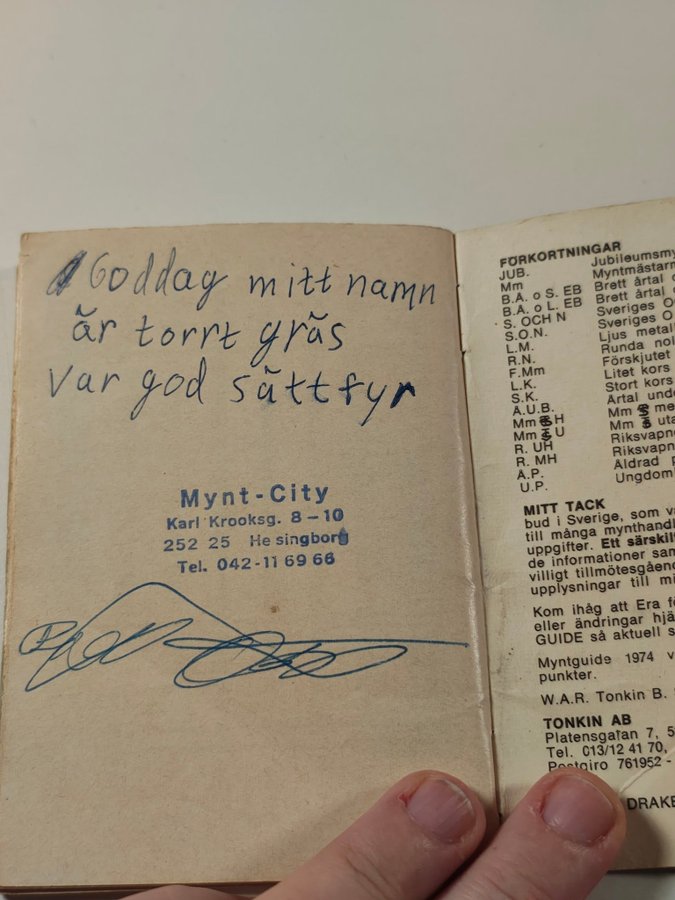 Goddag mitt namn
är torrt gräs
Var god sätt fyr
Mynt-City
Karl Krooksg. 8-10
252 25 He singborg
Tel. 042-11 69 66
FÖRKORTNINGAR
JUB. Jubileumsmy
Mm Myntmästarm
B.Å. o S. EB Brett årtal o
B.Å. o L. EB Brett årtal o
S. OCH N Sveriges O
S.O.N. Sveriges O
L.M. Ljus metall
R.N. Runda nol
F.Mm Förskjutet
L.K. Litet kors
S.K. Stort kors
Å.U.B. Årtal und
Mm H Mm me
Mm U Mm uta
R. UH Riksvapne
R. MH Riksvapn
Å.P. Åldrad p
U.P. Ungdom
MITT TACK
bud i Sverige, som va
till många mynthandl
uppgifter. Ett särskil
de informationer sam
villigt tillmötesgåend
upplysningar till mi
Kom ihåg att Era fö
eller ändringar hjä
GUIDE så aktuell s
Myntguide 1974 v
punkter.
W.A.R. Tonkin B.
TONKIN AB
Platensgatan 7, 5
Tel. 013/12 41 70,
Postgiro 761952 -
DRAKE